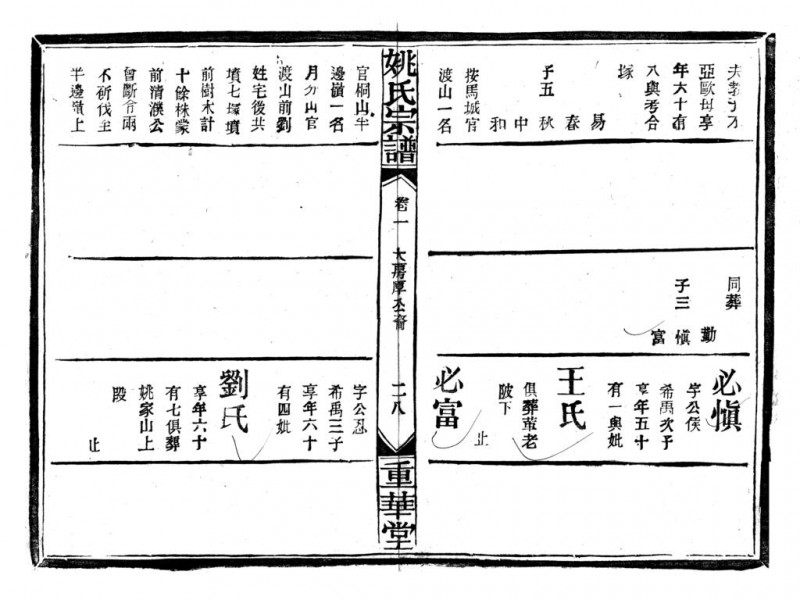 亞歐母享
年六十有
八與考合
塚
子五
易
春
秋
中
和
按馬城官
渡山一名
同葬
子三
勤
慎
富
必慎
字公侯
希禹次子
享年五十
有一與妣
王氏
俱葬董老
陂下
止
必富
姚氏宗譜
卷一
大房厚公裔
二八
重華堂
官桐山半
邊嶺一名
月分山官
渡山前劉
姓宅後共
墳七塚墳
前樹木計
十餘株蒙
前清濮公
曾斷令兩
不斫伐主
半邊嶺上
字公忍
希禹三子
享年六十
有四妣
劉氏
享年六十
有七俱葬
姚家山上
殿
止